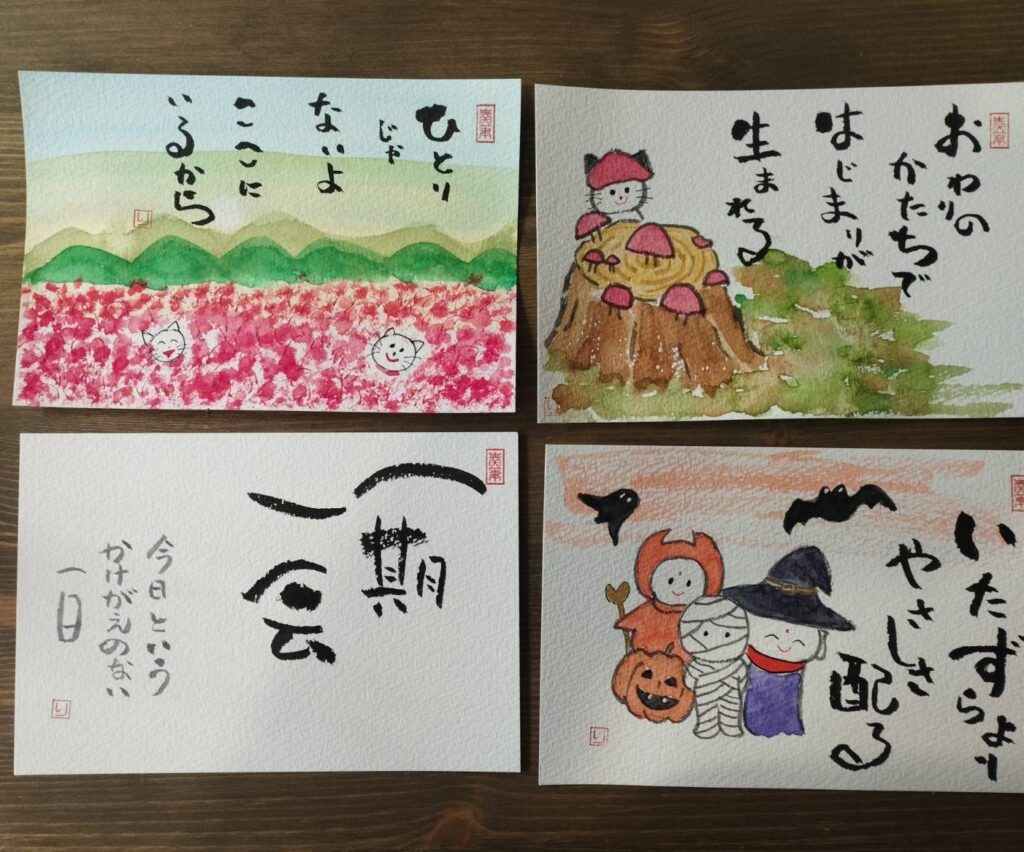 ひとり
じゃ
ないよ
ここに
いるから
り
おわりの
かたちで
はじまりが
生まれる
一期
一会
今日という
かけがえのない
一日
り
いたずらより
やさしさ
配る
り